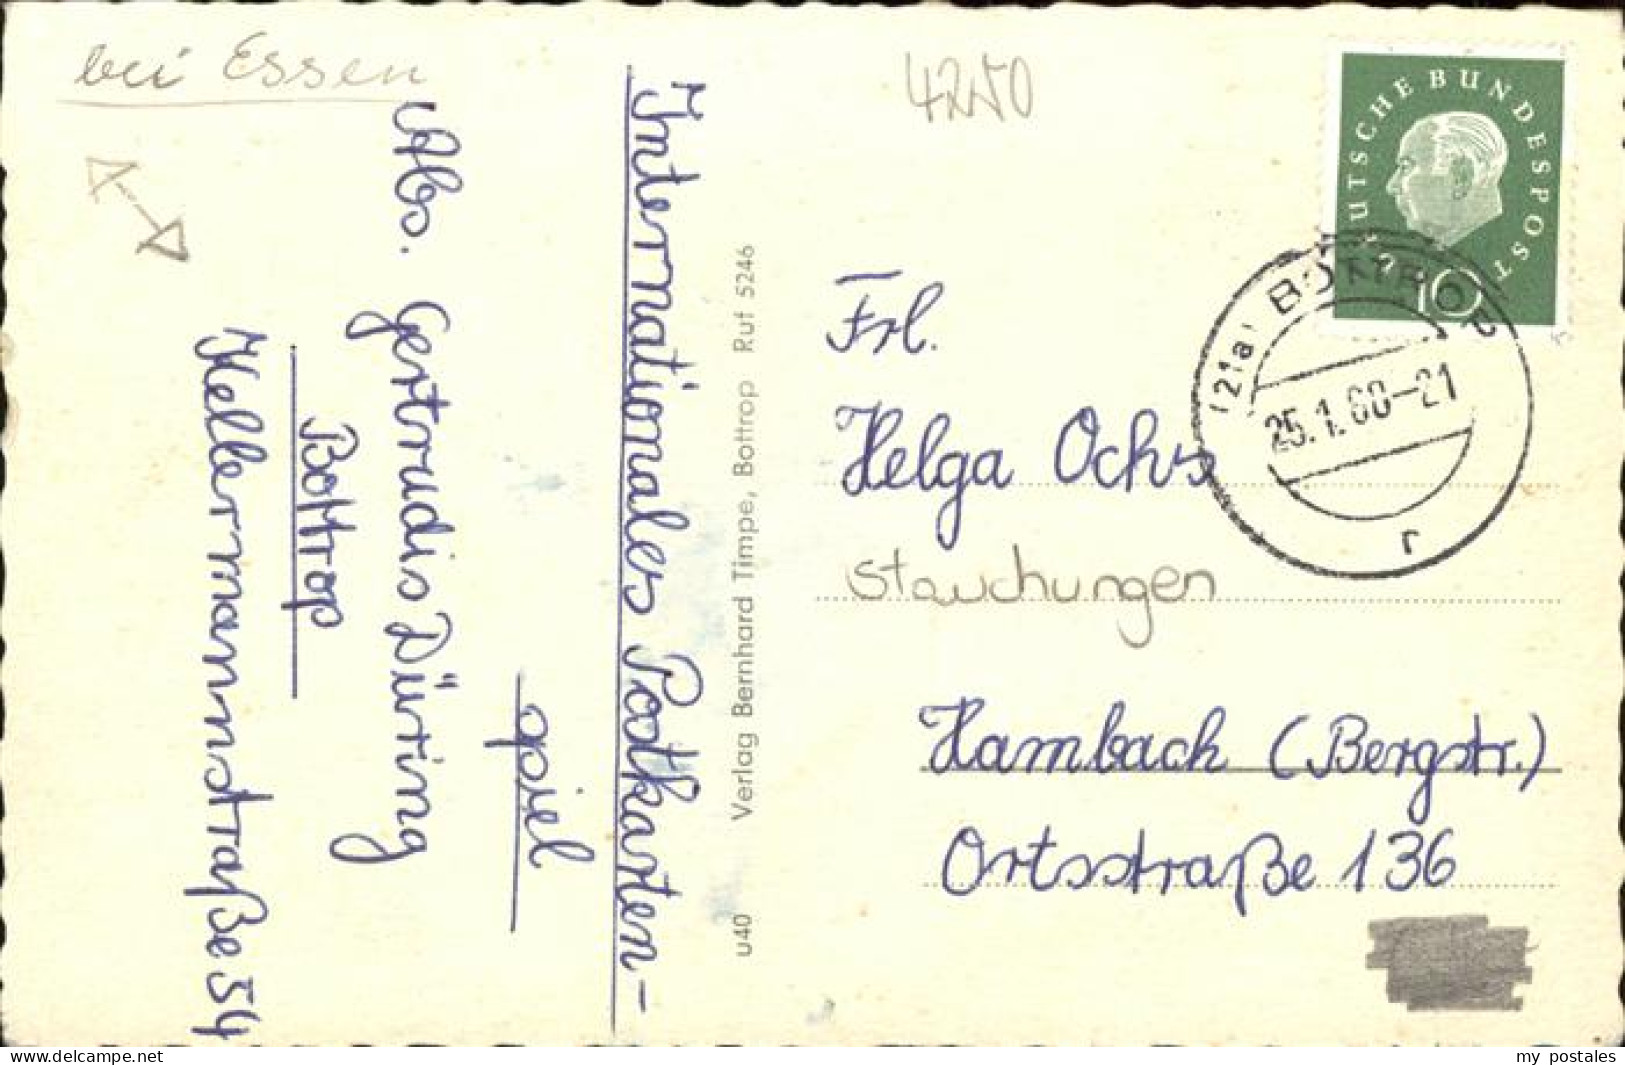 bei Essen
Internationales Postkarten-
spiel
Abs. Gertrudis Düring
Bottrop
Kellermannstraße 54
u40 Verlag Bernhard Timpe, Bottrop Ruf 5246
4250
DEUTSCHE BUNDESPOST
10
(21a) BOTTROP
25.1.60-21
r
Frl.
Helga Ochs
Stauchungen
Hambach (Bergstr.)
Ortsstraße 136
www.delcampe.net
my postales